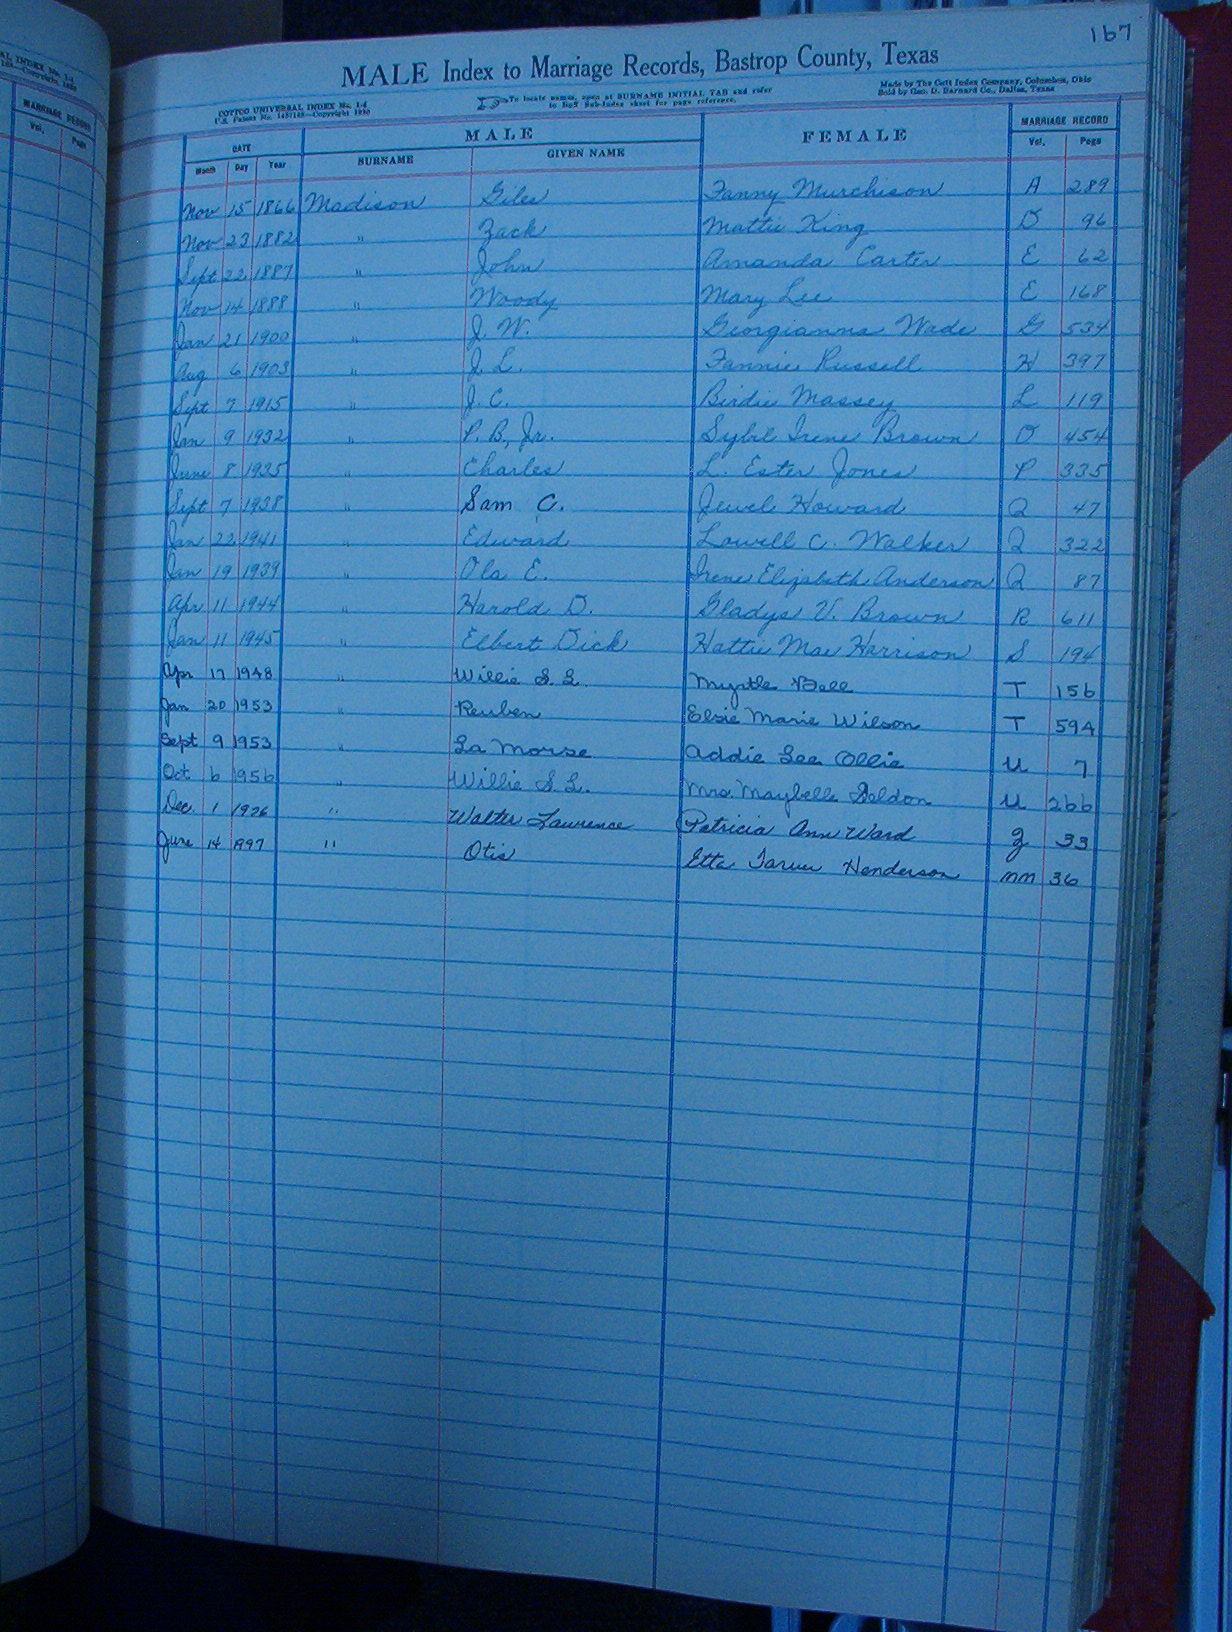 167
MALE Index to Marriage Records, Bastrop County, Texas
COTTCO UNIVERSAL INDEX No. 1-4
To locate names, open at SURNAME INITIAL TAB and refer
to Sub-Index sheet for page reference.
Made by The Cott Index Company, Columbus, Ohio
Sold by Geo. D. Barnard Co., Dallas, Texas
DATE MALE FEMALE MARRIAGE RECORD
Month Day Year SURNAME GIVEN NAME Vol. Page
Nov 15 1866 Madison Giles Fanny Murchison A 289
Nov 23 1882 " Zack Mattie King D 96
Sept 22 1887 " John Amanda Carter E 62
Nov 14 1888 " Woody Mary Lee E 168
Jan 21 1900 " J. W. Georgianna Wade G 534
Aug 6 1903 " J. L. Fannie Russell H 397
Sept 7 1915 " J. C. Birdie Massey L 119
Jan 9 1932 " P. B, Jr. Sybil Irene Brown O 454
June 8 1935 " Charles L. Ester Jones P 335
Sept 7 1938 " Sam C. Jewel Howard Q 47
Jan 22 1941 " Edward Lowell C. Walker Q 322
Jan 19 1939 " Ola E. Irene Elizabeth Anderson Q 87
Apr 11 1944 " Harold D. Gladys V. Brown R 611
Jan 11 1945 " Elbert Dick Hattie Mae Harrison S 194
Apr 17 1948 " Willie S. L. Myrtle Bell T 156
Jan 20 1953 " Reuben Elsie Marie Wilson T 594
Sept 9 1953 " La Morse Addie Lee Ollie U 7
Oct 6 1956 " Willie S. L. Mrs. Maybelle U 266
Dec. 1 " Walter Lawrence Patricia Ann Ward 33
June 14 1997 " Otis Etta Henderson mm 36
MARRIAGE RECORD
Vol. Page